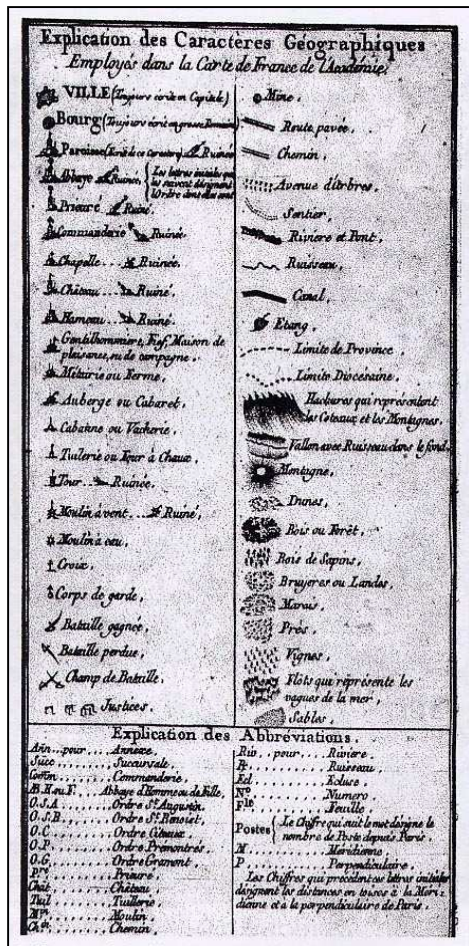 Explication des Caractères Géographiques
Employés dans la Carte de France de l'Académie.
VILLE (Toujours écrit en Capitale)
Bourg (Toujours écrit en grosse Romaine)
Paroisse (Ecrit de ce Caractere) Ruinée
Abbaye Ruinée, { Les lettres initiales qui
les suivent désignent
l'Ordre dont elles sont
Prieuré Ruiné.
Commanderie Ruinée.
Chapelle... Ruinée.
Château... Ruiné.
Hameau... Ruiné.
Gentilhommiere, Fief, Maison de
plaisance, ou de campagne.
Métairie ou Ferme.
Auberge ou Cabaret,
Cabanne ou Vacherie.
Tuilerie ou Four à Chaux.
Tour... Ruinée.
Moulin à vent... Ruiné,
Moulin à eau;
Croix,
Corps de garde,
Bataille gagnée,
Bataille perdue,
Champ de Bataille,
Justices.
Mine,
Route pavée,
Chemin,
Avenue d'Arbres,
Sentier,
Riviere et Pont,
Ruisseau,
Canal,
Etang,
Limite de Province
Limite Diocésaine,
Hachures qui représentent
les Coteaux et les Montagnes.
Vallon avec Ruisseau dans le fond.
Montagne,
Dunes,
Bois ou Forêt,
Bois de Sapins,
Bruyeres ou Landes,
Marais,
Prés,
Vignes,
Flots qui représente les
vagues de la mer,
Sables.
Explication des Abbréviations.
Ann. pour.... Annexe.
Succ......... Succursale.
Comm........ Commanderie.
Ab. H. ou F... Abbaye d'Hommes ou de Fille.
O.S.A........ Ordre St. Augustin.
O.S.B........ Ordre St. Benoist,
O.C.......... Ordre Citeaux
O.P.......... Ordre Prémontrés
O.G.......... Ordre Gramont
P.ré......... Prieuré
Chât......... Château
Tuil......... Tuillerie
M.in......... Moulin.
Ch.in........ Chemin.
Riv. pour.... Riviere.
R............ Ruisseau.
Ecl.......... Ecluse
N°........... Numero
F.lle........ Feuille
Postes { Le Chiffre qui suit le mot désigne le
nombre de Poste depuis Paris.
M............ Méridienne
P............ Perpendiculaire.
Les Chiffres qui précédent ces lettres initiales
désignent les distances en toises à la Méri-
dienne et à la perpendiculaire de Paris.